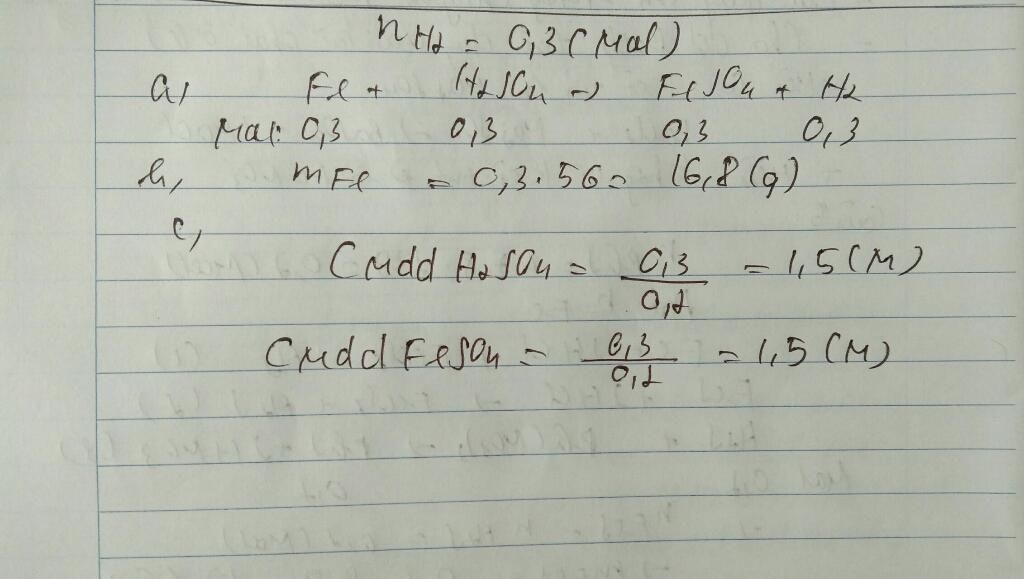 nH2 = 0,3 (mol)
a, Fe + H2SO4 → FeSO4 + H2
mol: 0,3 0,3 0,3 0,3
b, mFe = 0,3.56 = 16,8 (g)
c,
CMdd H2SO4 = 0,3/0,2 = 1,5 (M)
CMdd FeSO4 = 0,3/0,2 = 1,5 (M)